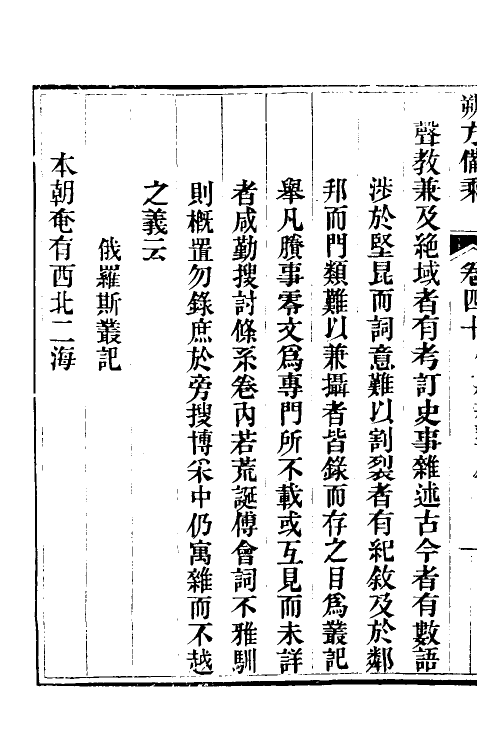 朔方備乘
卷四十
聲教兼及絕域者有考訂史事雜述古今者有數語
涉於堅昆而詞意難以割裂者有紀敘及於鄰
邦而門類難以兼攝者皆錄而存之目爲叢記
舉凡賸事零文爲專門所不載或互見而未詳
者咸勤搜討條系卷內若荒誕傅會詞不雅馴
則概置勿錄庶於旁搜博采中仍寓雜而不越
之義云
俄羅斯叢記
本朝奄有西北二海